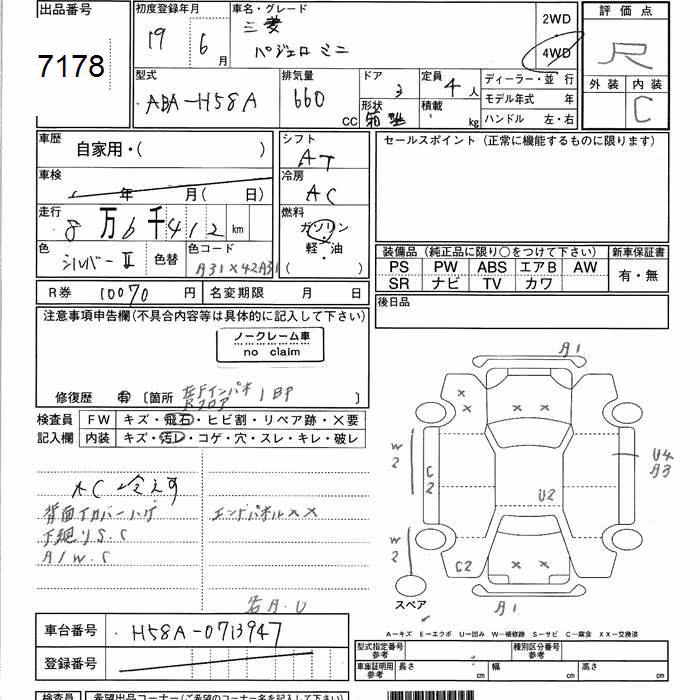 出品番号 初度登録年月 車名・グレード 2WD 評価点
7178 19 年 6 月 三菱 パジェロ ミニ 4WD R
型式 排気量 ドア 定員 ディーラー・並行 外装 内装
ABA-H58A 660 cc 3 4人 モデル年式 年 C
形状 積載 kg ハンドル 左・右
車歴 自家用・( ) シフト AT セールスポイント (正常に機能するものに限ります)
車検 年 月( 日) 冷房 AC
走行 8万6千412 km 燃料 ガソリン・軽・油 ( )
色 シルバーII 色替 色コード A31X42A31
装備品 (純正品に限り○をつけて下さい) 新車保証書
PS PW ABS エアB AW 有・無
SR ナビ TV カワ
R券 10070 円 名変期限 月 日 後日品
注意事項申告欄(不具合内容等は具体的に記入して下さい)
ノークレーム車
no claim
修復歴 有 〔箇所 〕
検査員 FW キズ・飛石・ヒビ割・リペア跡・×要
記入欄 内装 キズ・汚レ・コゲ・穴・スレ・キレ・破レ
AC 冷えず
背面タイカバーハゲ エンドパネルXX
下廻りS.C
A/W.C
各A.U
A1
W2
C2
U4
A3
U2
W2
C2
スペア
A1
A−キズ E−エクボ U−凹み W−補修跡 S−サビ C−腐食 XX−交換済
車台番号 H58A-0713947
登録番号
型式指定番号 参考 種別区分番号 参考
車庫証明用 参考 長さ cm 幅 cm 高さ cm
検査員 希望出品コーナー(ご希望のコーナー名を記入して下さい)